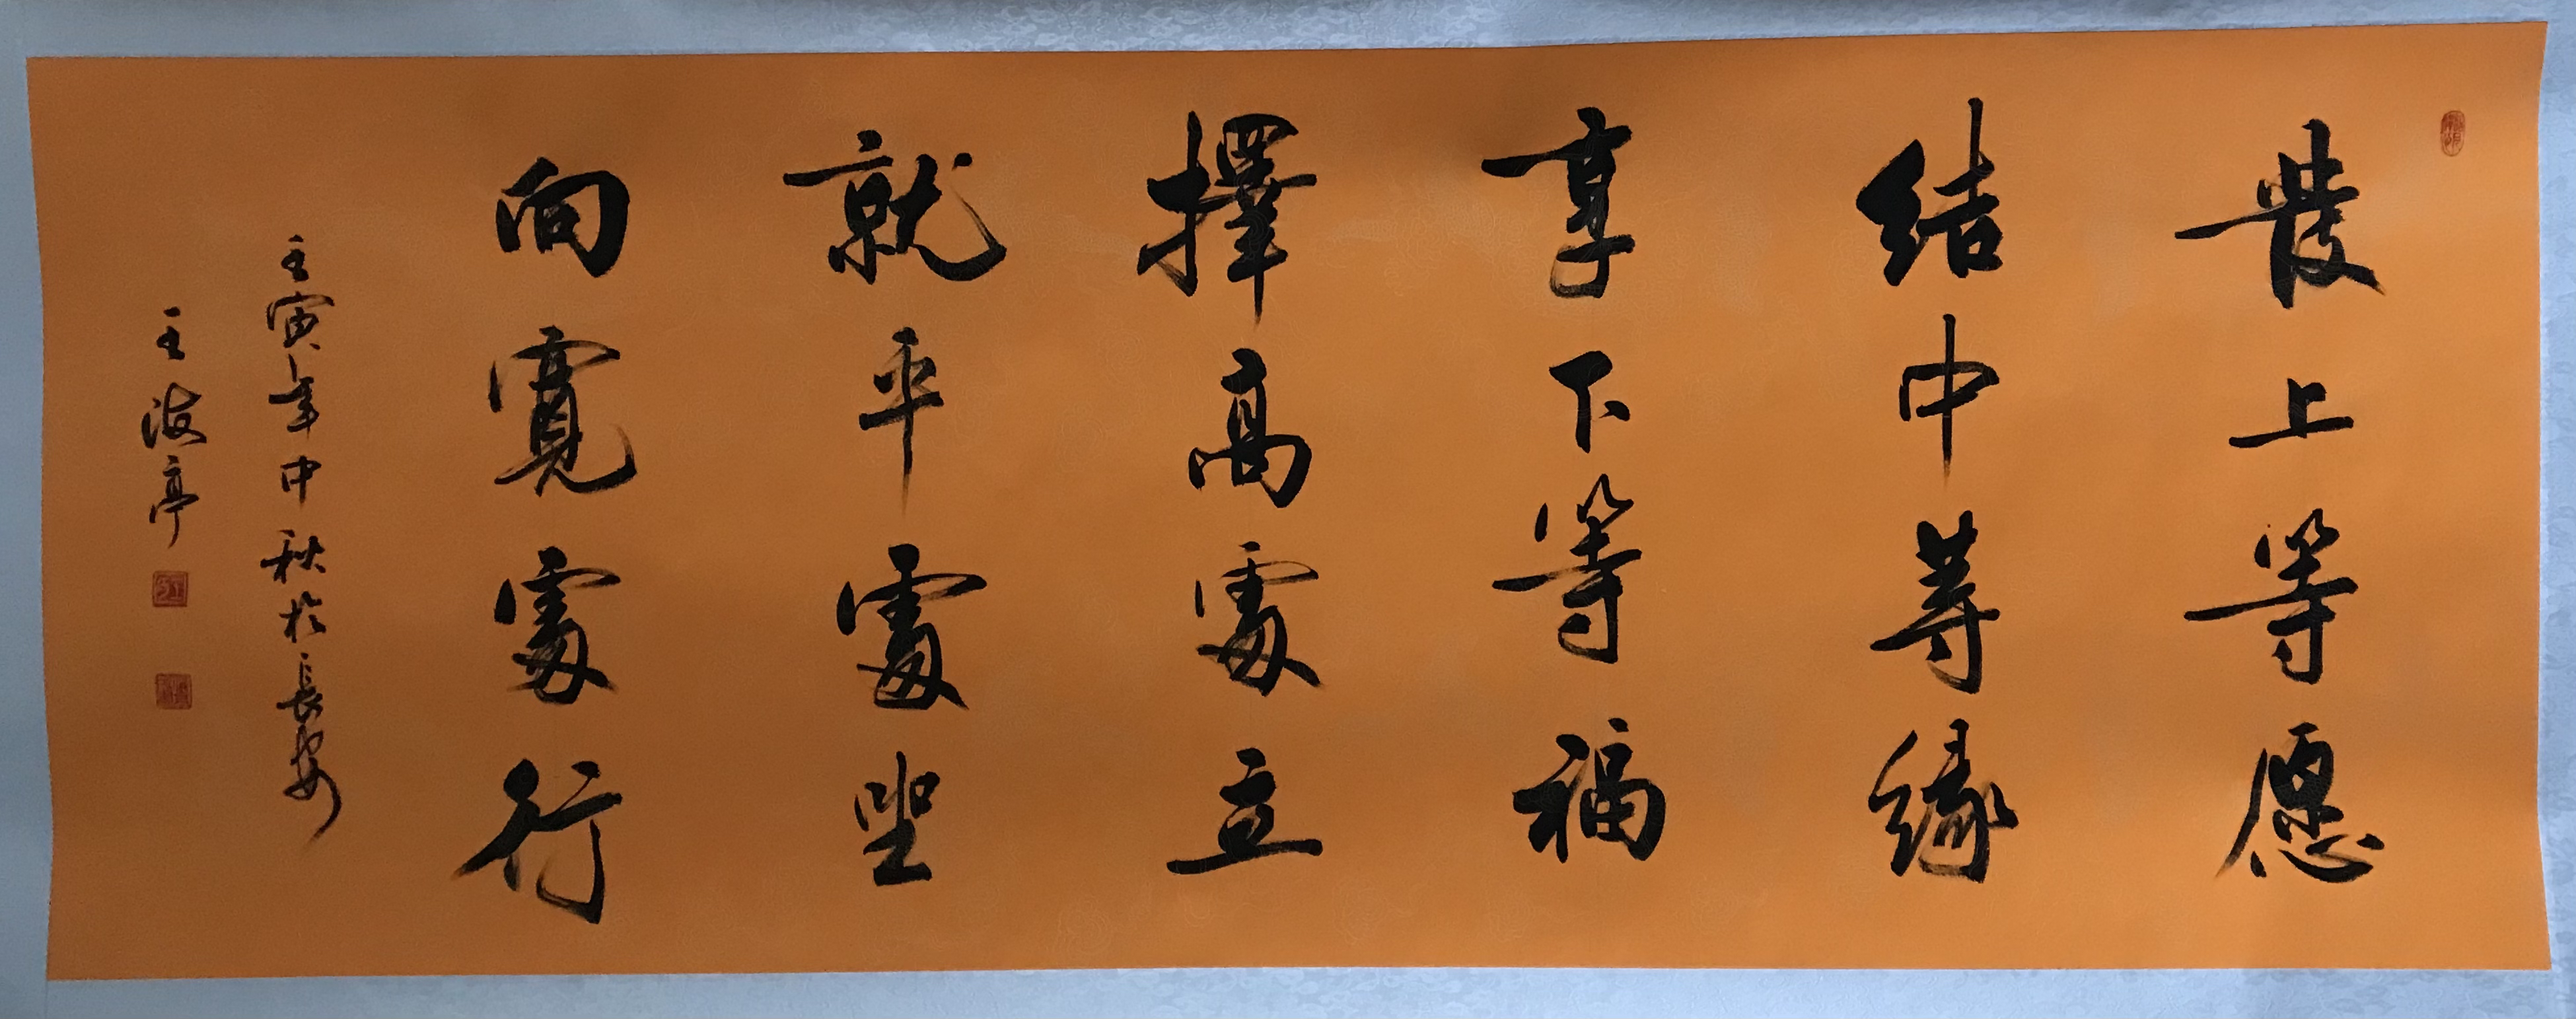 發上等愿
結中等緣
享下等福
擇高處立
就平處坐
向寬處行
壬寅年中秋於長安
王波亭